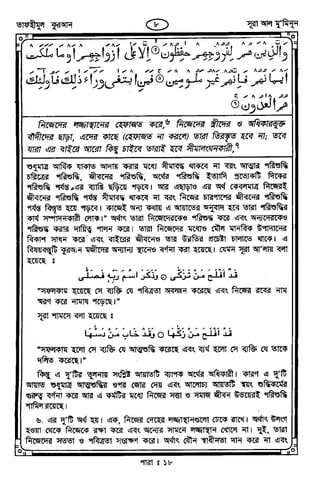 তাফহীমুল কুরআন ৮ সূরা আল মু'মিনূন
وَالَّذِينَ هُمْ لِفُرُوجِهِمْ حَفِظُونَ ۝ إِلَّا عَلَى أَزْوَاجِهِمْ أَوْ مَا مَلَكَتْ
أَيْمَانُهُمْ فَإِنَّهُمْ غَيْرُ مَلُومِينَ ۝ فَمَنِ ابْتَغَى وَرَاءَ ذَلِكَ فَأُولَئِكَ
هُمُ الْعَادُونَ ۝
নিজেদের লজ্জাস্থানের হেফাজত করে,৬ নিজেদের স্ত্রীদের ও অধিকারভুক্ত
বাঁদীদের ছাড়া, এদের কাছে (হেফাজত না করলে) তারা তিরষ্কৃত হবে না; তবে
যারা এর বাইরে আরো কিছু চাইবে তারাই হবে সীমালংঘনকারী,৭
শুধুমাত্র আর্থিক যাকাত আদায় করার মধ্যে সীমাবদ্ধ থাকবে না বরং আত্মার পরিশুদ্ধি
চরিত্রের পরিশুদ্ধি, জীবনের পরিশুদ্ধি, অর্থের পরিশুদ্ধি ইত্যাদি প্রত্যেকটি দিকের
পরিশুদ্ধি পর্যন্ত এর ব্যাপ্তি ছড়িয়ে পড়বে। আর এছাড়াও এর অর্থ কেবলমাত্র নিজেরই
জীবনের পরিশুদ্ধি পর্যন্ত সীমাবদ্ধ থাকবে না বরং নিজের চারপাশের জীবনের পরিশুদ্ধি
পর্যন্ত বিস্তৃত হয়ে পড়বে। কাজেই অন্য কথায় এ আয়াতের অনুবাদ হবে তারা পরিশুদ্ধির
কার্য সম্পাদনকারী লোক।" অর্থাৎ তারা নিজেদেরকেও পরিশুদ্ধ করে এবং অন্যদেরকেও
পরিশুদ্ধ করার দায়িত্ব পালন করে। তারা নিজেদের মধ্যেও মৌল মানবিক উপাদানের
বিকাশ সাধন করে এবং বাইরের জীবনেও তার উন্নতির প্রচেষ্টা চালাতে থাকে। এ
বিষয়বস্তুটি কুরআন মজীদের অন্যান্য স্থানেও বর্ণনা করা হয়েছে। যেমন সূরা আ'লায় বলা
হয়েছে ঃ
قَدْ أَفْلَحَ مَنْ تَزَكَّى ۝ وَذَكَرَ اسْمَ رَبِّهِ فَصَلَّى
"সফলকাম হয়েছে সে ব্যক্তি যে পবিত্রতা অবলম্বন করেছে এবং নিজের রবের নাম
স্মরণ করে নামায পড়েছে।"
সূরা শামসে বলা হয়েছে ঃ
قَدْ أَفْلَحَ مَنْ زَكَّهَا ۝ وَقَدْ خَابَ مَنْ دَسَّهَا
"সফলকাম হলো সে ব্যক্তি যে আত্মশুদ্ধি করেছে এবং ব্যর্থ হলো সে ব্যক্তি যে তাকে
দলিত করেছে।"
কিন্তু এ দু'টির তুলনায় সংশ্লিষ্ট আয়াতটি ব্যাপক অর্থের অধিকারী। কারণ এ দু'টি
আয়াত শুধুমাত্র আত্মশুদ্ধির ওপর জোর দেয় এবং আলোচ্য আয়াতটি স্বয়ং শুদ্ধিকর্মের
গুরুত্ব বর্ণনা করে আর এ কর্মটির মধ্যে নিজের সত্তা ও সমাজ জীবন উভয়েরই পরিশুদ্ধি
শামিল রয়েছে।
৬. এর দু'টি অর্থ হয়। এক, নিজের দেহের লজ্জাস্থানগুলো ঢেকে রাখে। অর্থাৎ উলংগ
হওয়া থেকে নিজেকে রক্ষা করে এবং অন্যের সামনে লজ্জাস্থান খোলে না। দুই, তারা
নিজেদের সততা ও পবিত্রতা সংরক্ষণ করে। অর্থাৎ যৌন স্বাধীনতা দান করে না এবং
পারা ঃ ১৮